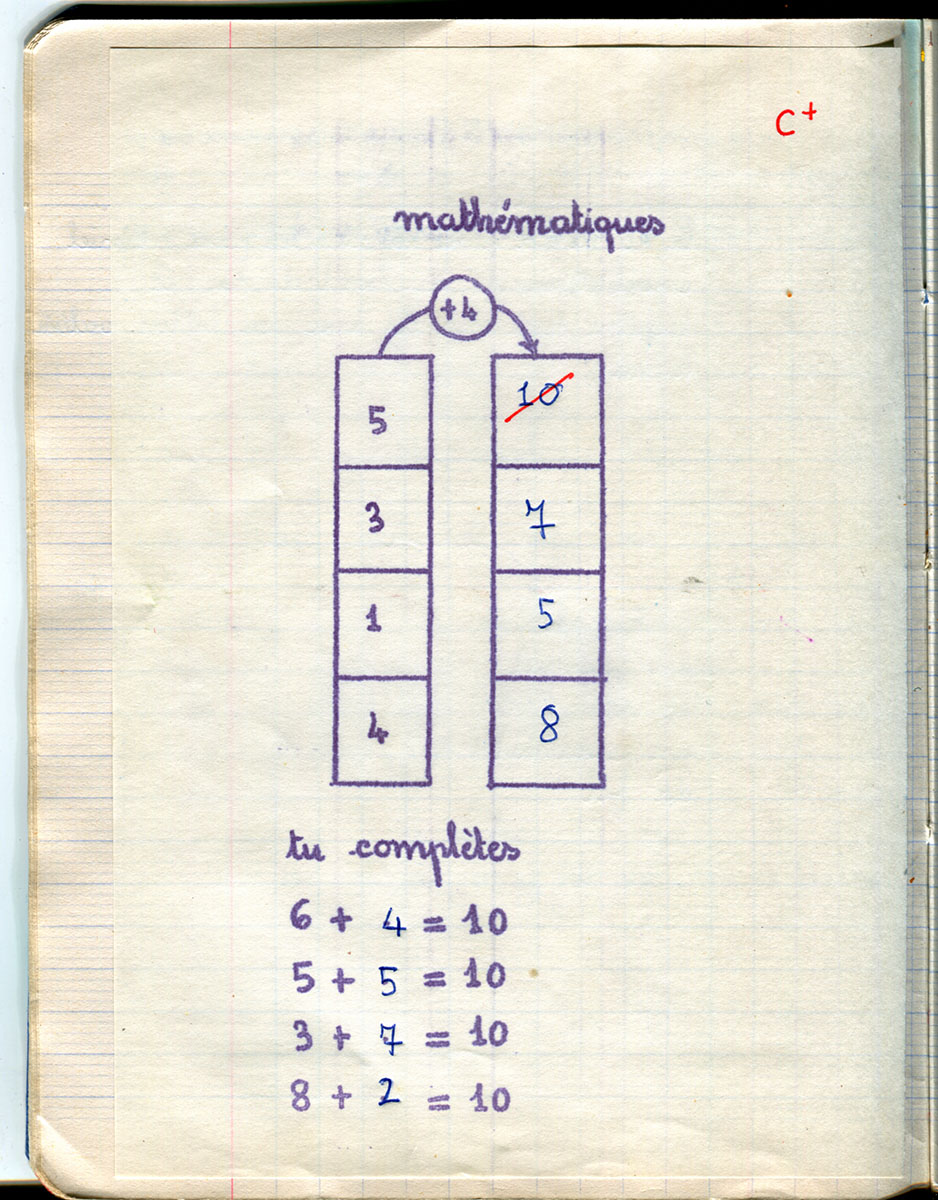 C+
mathématiques
+4
5 10
3 7
1 5
4 8
tu complètes
6 + 4 = 10
5 + 5 = 10
3 + 7 = 10
8 + 2 = 10